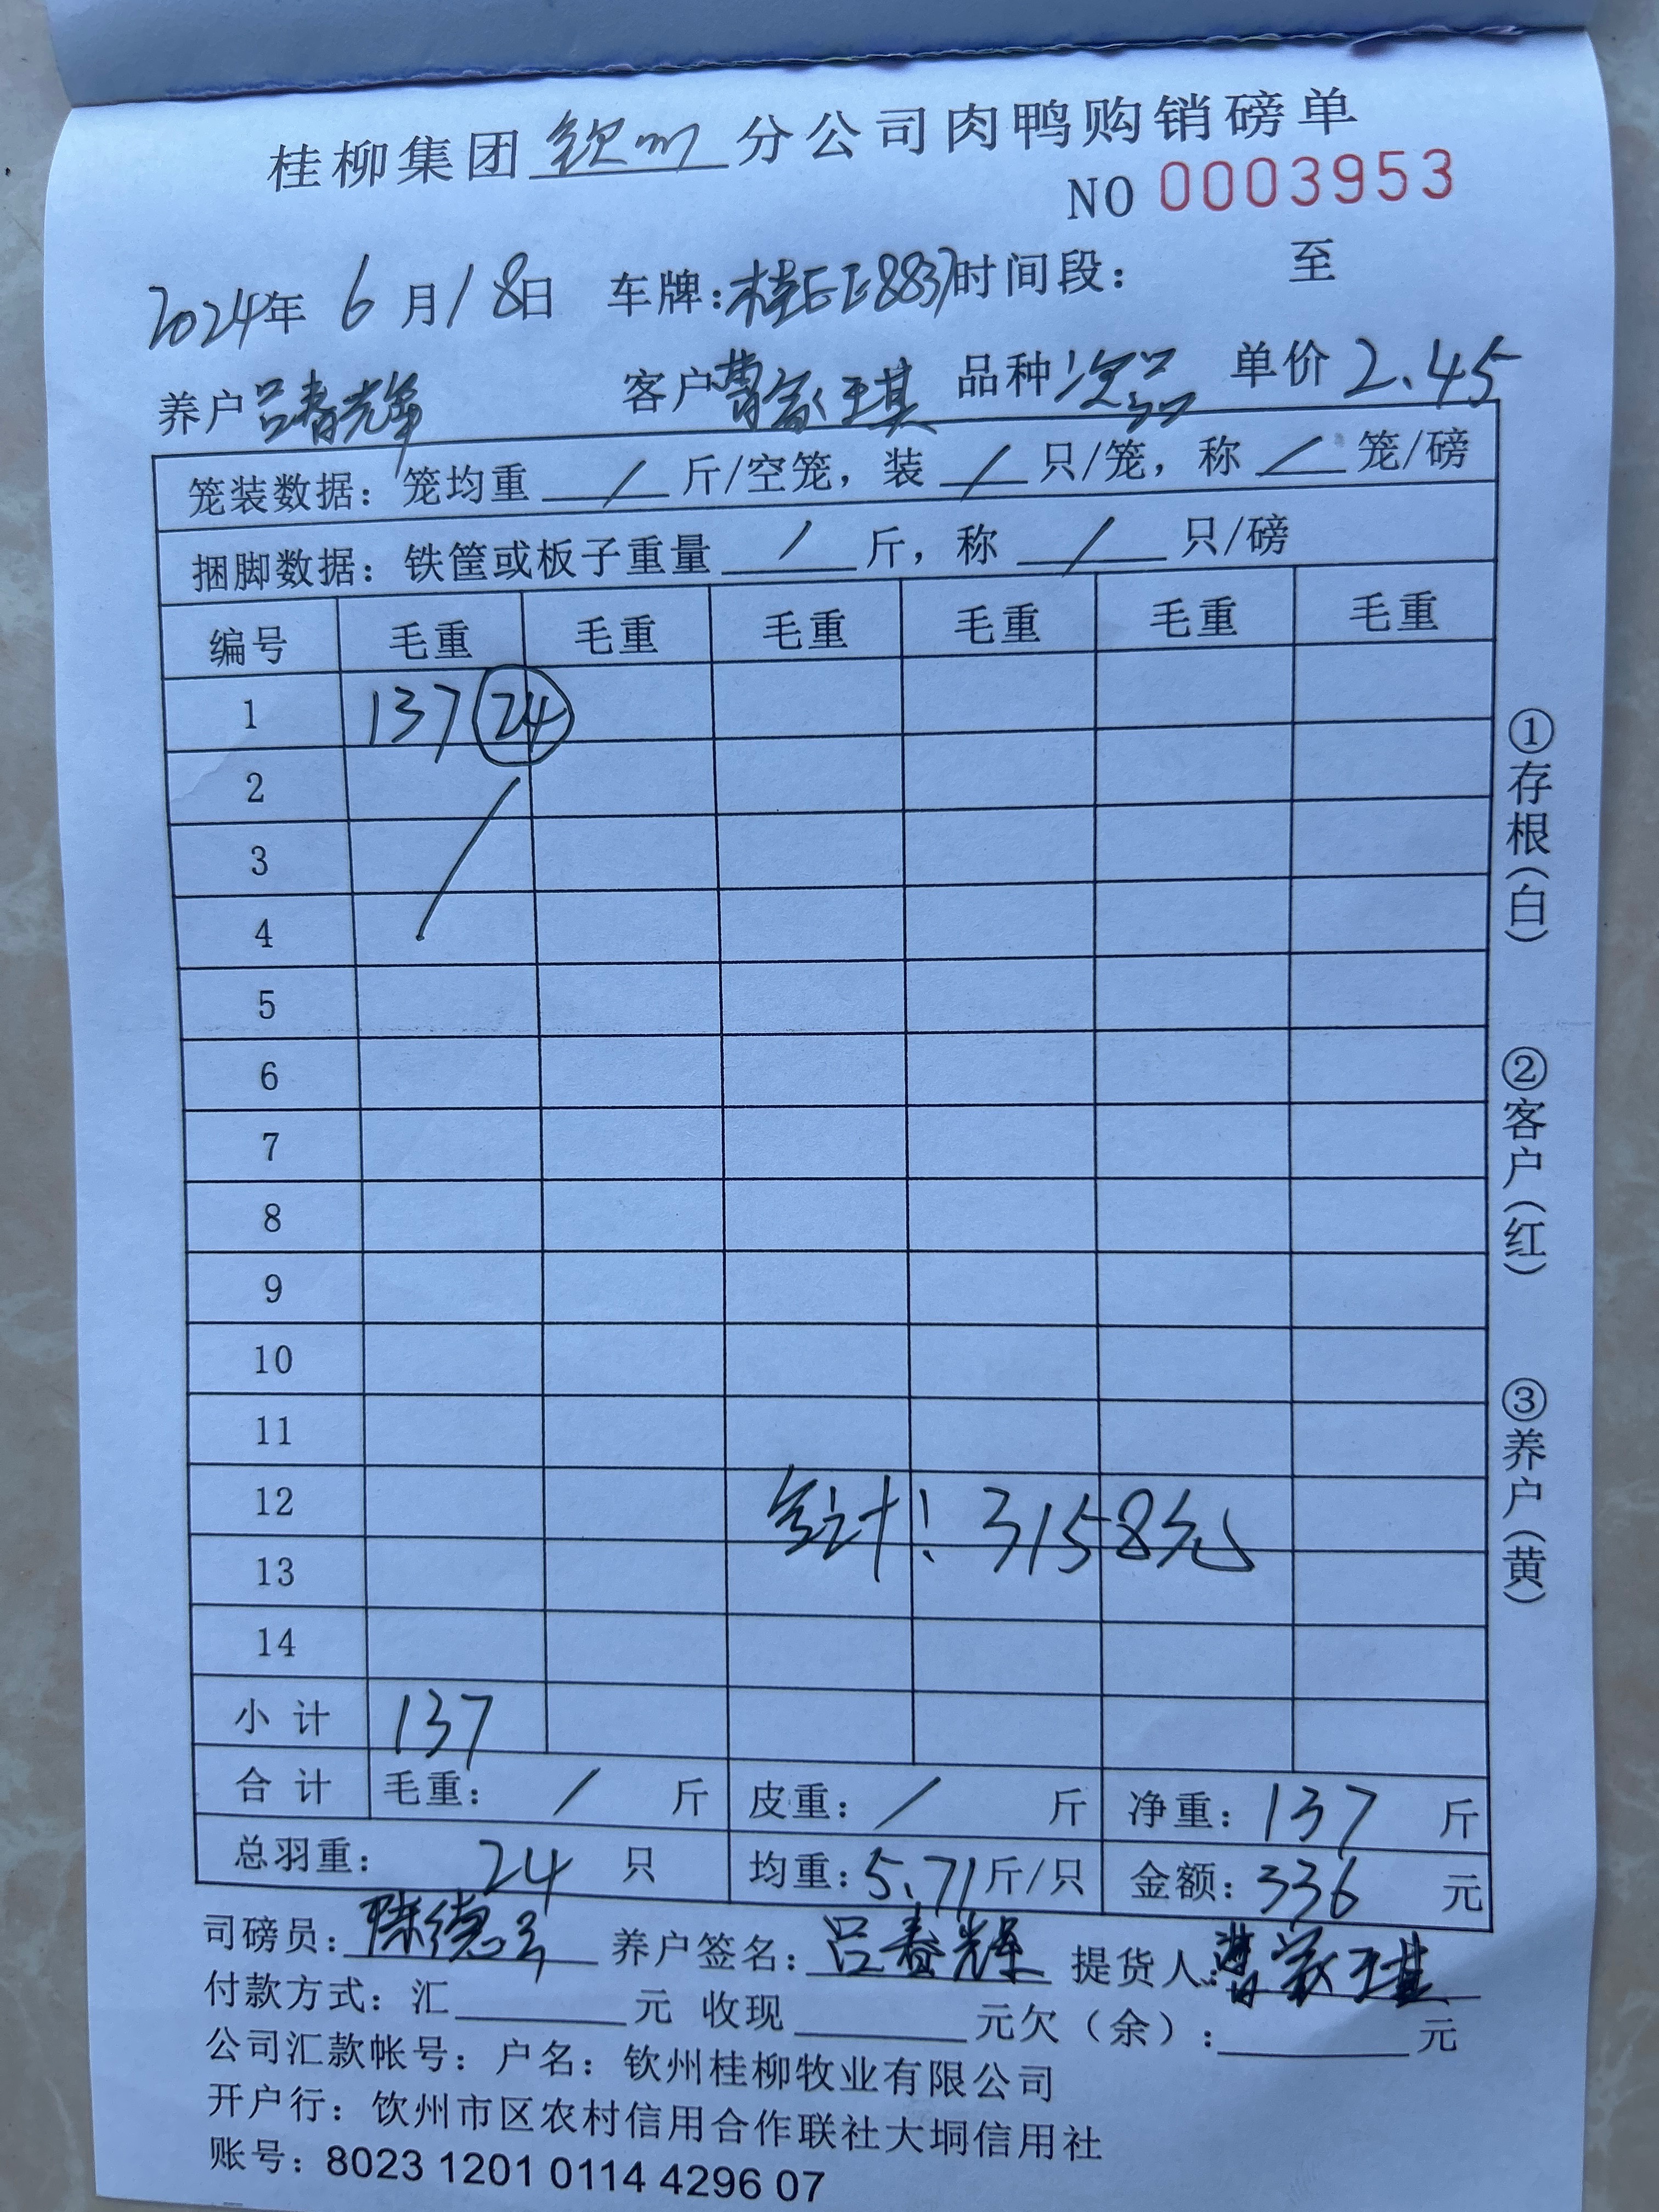 桂柳集团 钦州 分公司肉鸭购销磅单
NO 0003953
2024年 6月18日 车牌:桂EE8837 时间段: 至
养户 吕春辉 客户 曹家王琪 品种 次品 单价 2.45
笼装数据: 笼均重 / 斤/空笼, 装 / 只/笼, 称 / 笼/磅
捆脚数据: 铁筐或板子重量 / 斤, 称 / 只/磅
编号 毛重 毛重 毛重 毛重 毛重 毛重
1 137 24
2
3
4
5
6
7
8
9
10
11
12 合计: 3158元
13
14
小计 137
合计 毛重: / 斤 皮重: / 斤 净重: 137 斤
总羽重: 24 只 均重: 5.71 斤/只 金额: 336 元
司磅员: 陈德 养户签名: 吕春辉 提货人: 曹家王琪
付款方式: 汇 元 收现 元欠(余): 元
公司汇款帐号: 户名: 钦州桂柳牧业有限公司
开户行: 饮州市区农村信用合作联社大垌信用社
账号: 8023 1201 0114 4296 07
①存根(白)
②客户(红)
③养户(黄)